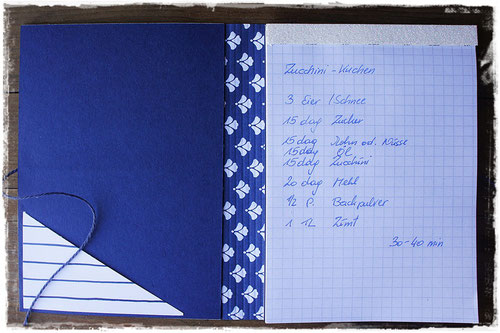 Zucchini-Kuchen
3 Eier /Schnee
15 dag Zucker
15 dag Kokn od. Nüsse
15 dag Öl
15 dag Zucchini
20 dag Mehl
1/2 P. Backpulver
1 TL Zimt
30-40 min